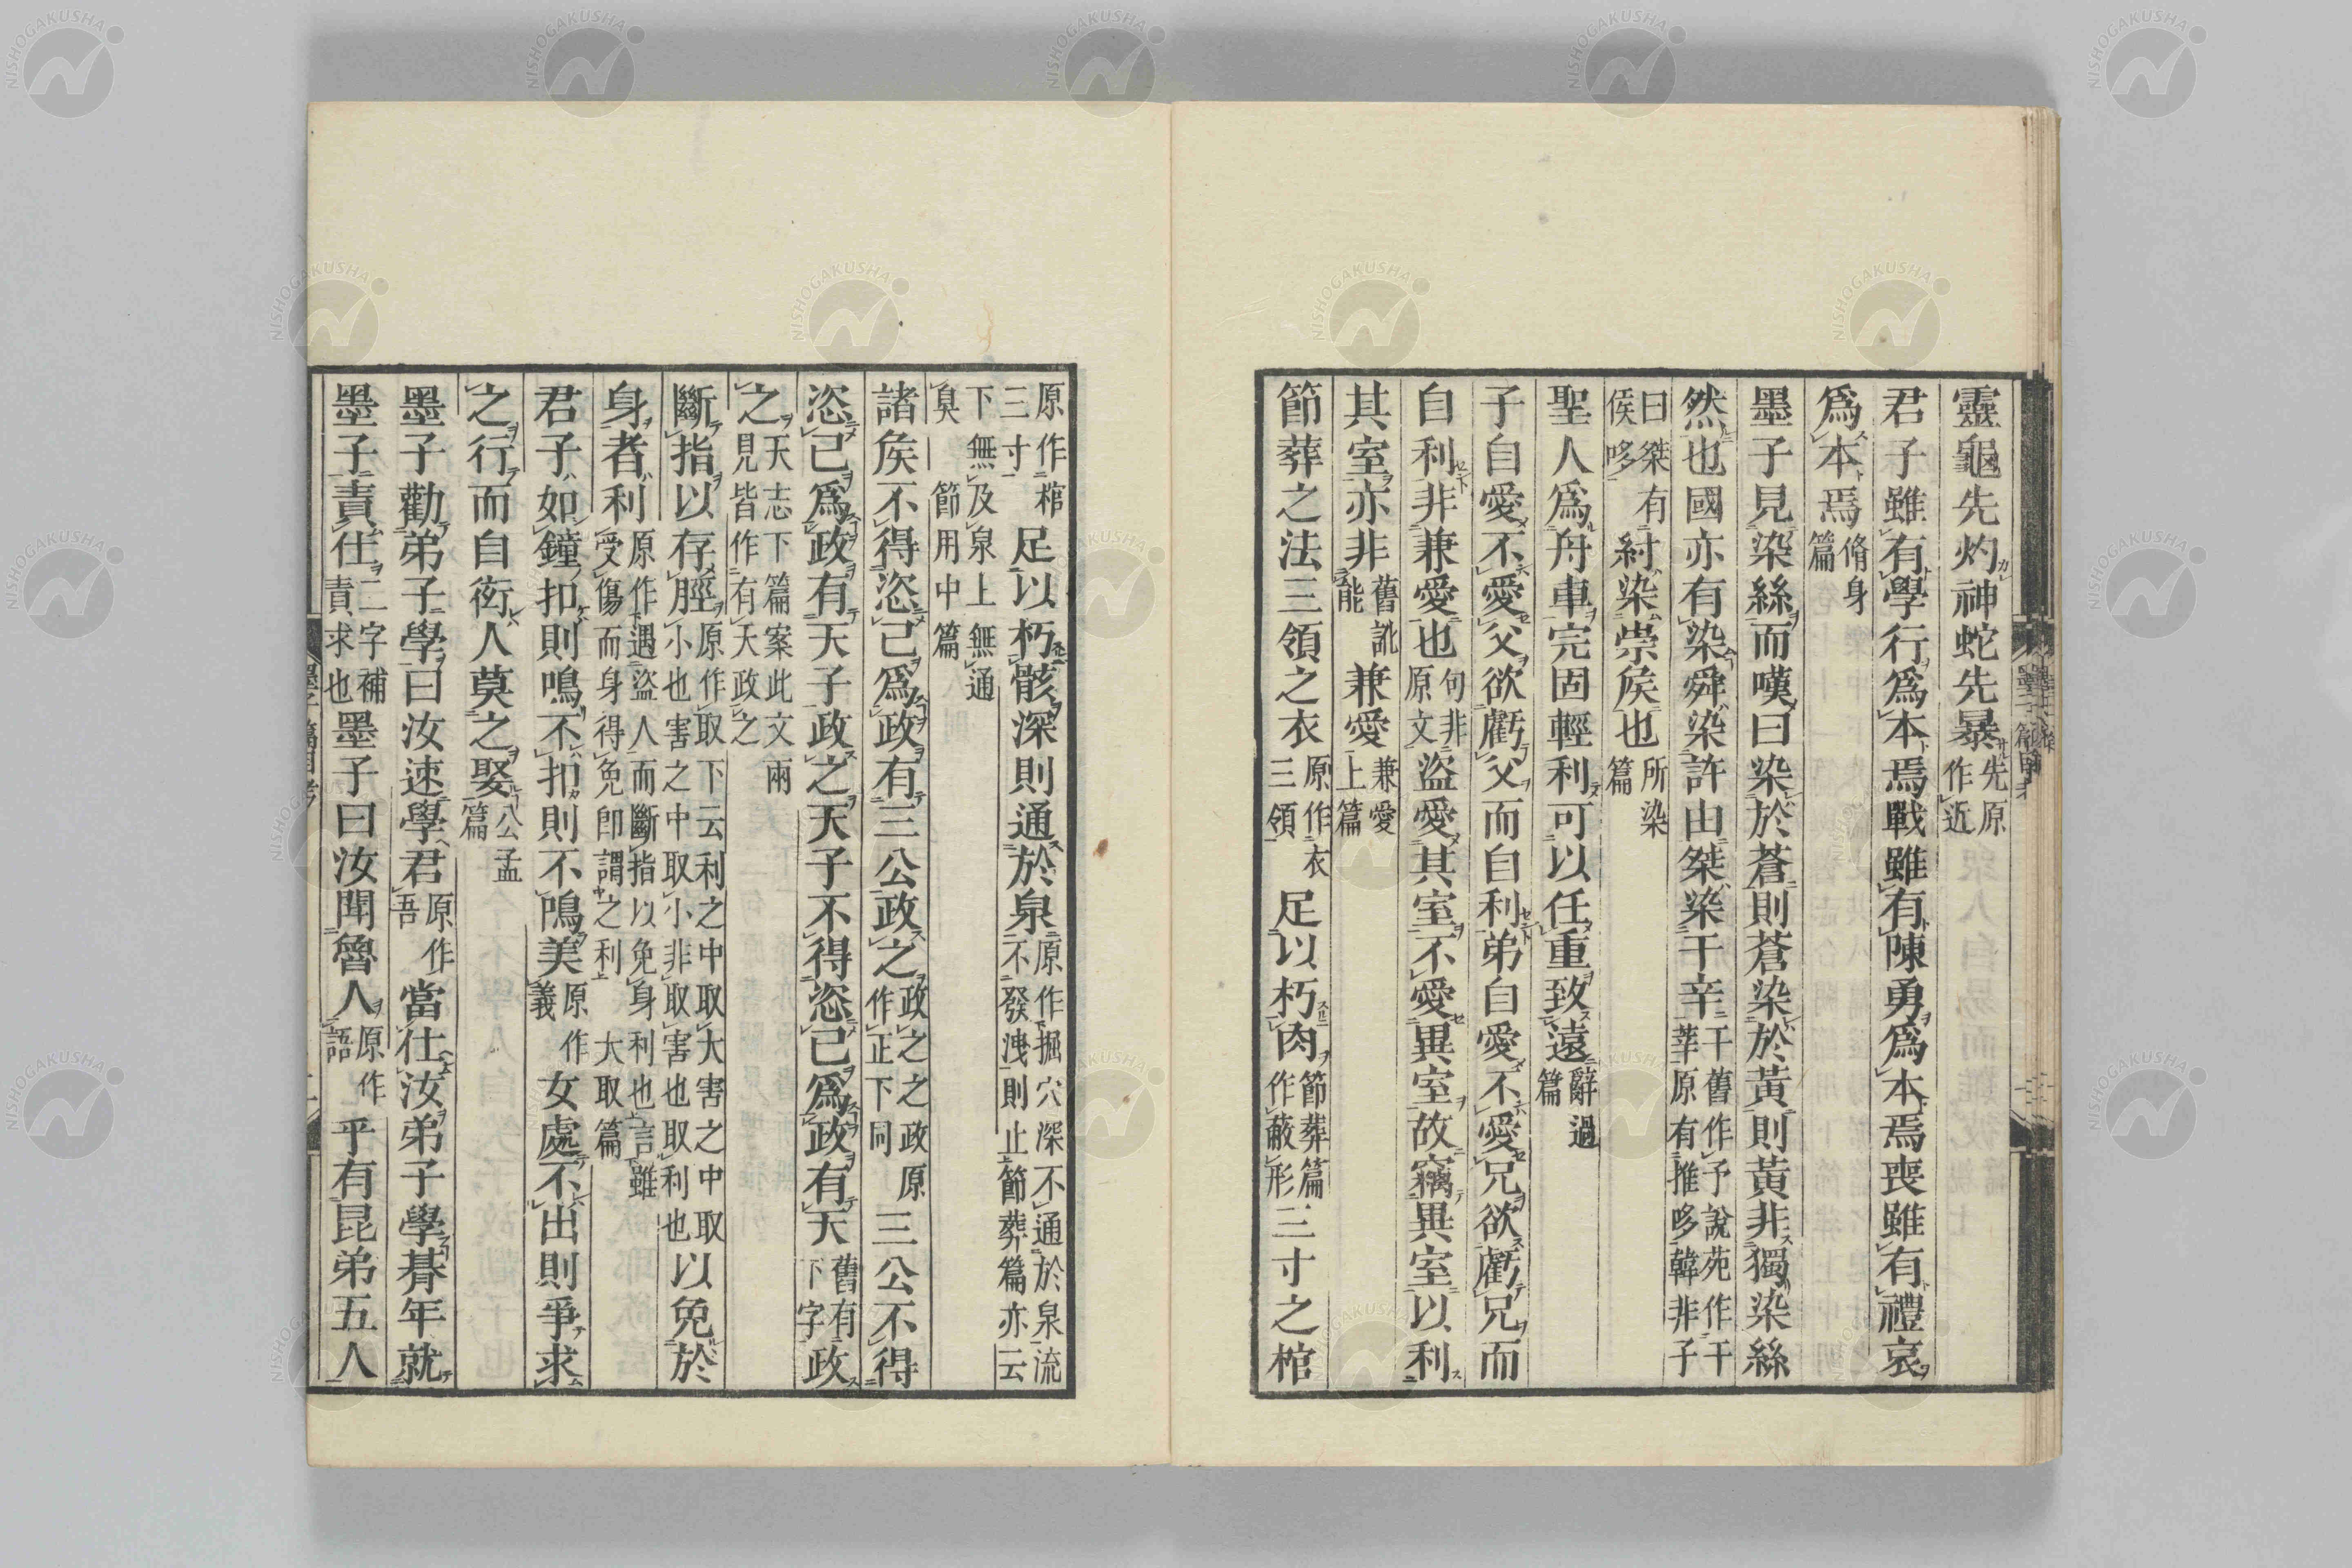 靈龜先灼神蛇先暴先原作近
君子雖有學行爲本焉戰雖有陳勇爲本焉喪雖有禮哀
爲本焉脩身篇
墨子見染絲而嘆曰染於蒼則蒼染於黃則黃非獨染絲
然也國亦有染舜染許由桀染干辛干舊作予說苑作干莘原有推哆韓非子
曰桀有侯哆紂染崇侯也所染篇
聖人爲舟車完固輕利可以任重致遠辭過篇
子自愛不愛父欲虧父而自利弟自愛不愛兄欲虧兄而
自利非兼愛也句非原文盜愛其室不愛異室故竊異室以利
其室亦非舊訛能兼愛兼愛上篇
節葬之法三領之衣原作衣三領足以朽肉節葬篇作蔽形三寸之棺
原作棺三寸足以朽骸深則通於泉原作掘穴深不通於泉流不發洩則止節葬篇亦云
下無及泉上無通臭節用中篇
諸侯不得恣己爲政有三公政之政之之政原作正下同三公不得
恣己爲政有天子政之天子不得恣己爲政有天舊有下字政
之天志下篇案此文兩見皆作有天政之
斷指以存脛原作取下云利之中取大害之中取小也害之中取小非取害也取利也以免於
身者利原作遇盜人而斷指以免身利也言雖受傷而身得免卽謂之利大取篇
君子如鐘扣則鳴不扣則不鳴美原作義女處不出則爭求
之行而自衒人莫之娶公孟篇
墨子勸弟子學曰汝速學君原作吾當仕汝弟子學朞年就
墨子責仕二字補責求也墨子曰汝聞魯人原作語乎有昆弟五人